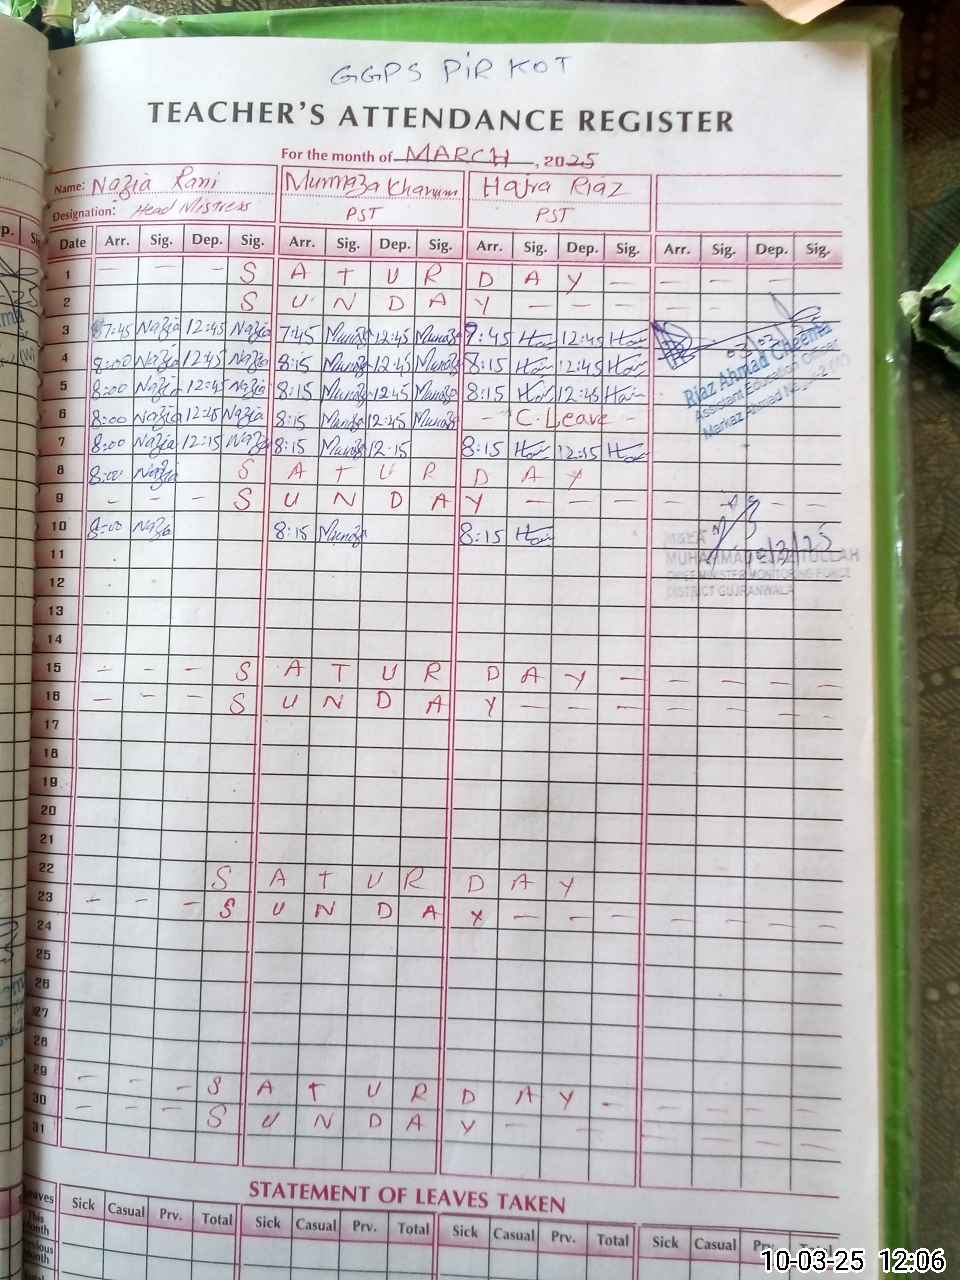 GGPS PIR KOT
TEACHER'S ATTENDANCE REGISTER
For the month of MARCH, 2025
Name: Nazia Rani Mumtaza Khanum Hajra Riaz
Designation: Head Mistress PST PST
Date Arr. Sig. Dep. Sig. Arr. Sig. Dep. Sig. Arr. Sig. Dep. Sig. Arr. Sig. Dep. Sig.
1 - - - S A T U R D A Y - - - - -
2 S U N D A Y - - - - - -
3 7:45 Nazia 12:45 Nazia 7:45 12:45 7:45 12:45
4 8:00 Nazia 12:45 Nazia 8:15 12:45 8:15 12:45
Riaz Ahmad Cheema
Assistant Education Officer
5 8:00 Nazia 12:45 Nazia 8:15 12:45 8:15 12:45
6 8:00 Nazia 12:45 Nazia 8:15 12:45 - C. Leave -
7 8:00 Nazia 12:15 Nazia 8:15 12:15 8:15 12:15
8 8:00 Nazia S A T U R D A Y
9 - - - S U N D A Y - - - - - -
10 8:00 Nazia 8:15 8:15
MUHAMMAD
CHIEF MINISTER MONITORING FORCE
DISTRICT GUJRANWALA
11
12
13
14
15 - - - S A T U R D A Y - - - - -
16 - - - S U N D A Y - - - - - -
17
18
19
20
21
22 S A T U R D A Y
23 - - - S U N D A Y - - - - - - -
24
25
26
27
28
29 - - - S A T U R D A Y - - - - -
30 - - - S U N D A Y - - - - -
31
STATEMENT OF LEAVES TAKEN
Leaves Sick Casual Prv. Total Sick Casual Prv. Total Sick Casual Prv. Total Sick Casual Prv. Total
This Month
10-03-25 12:06